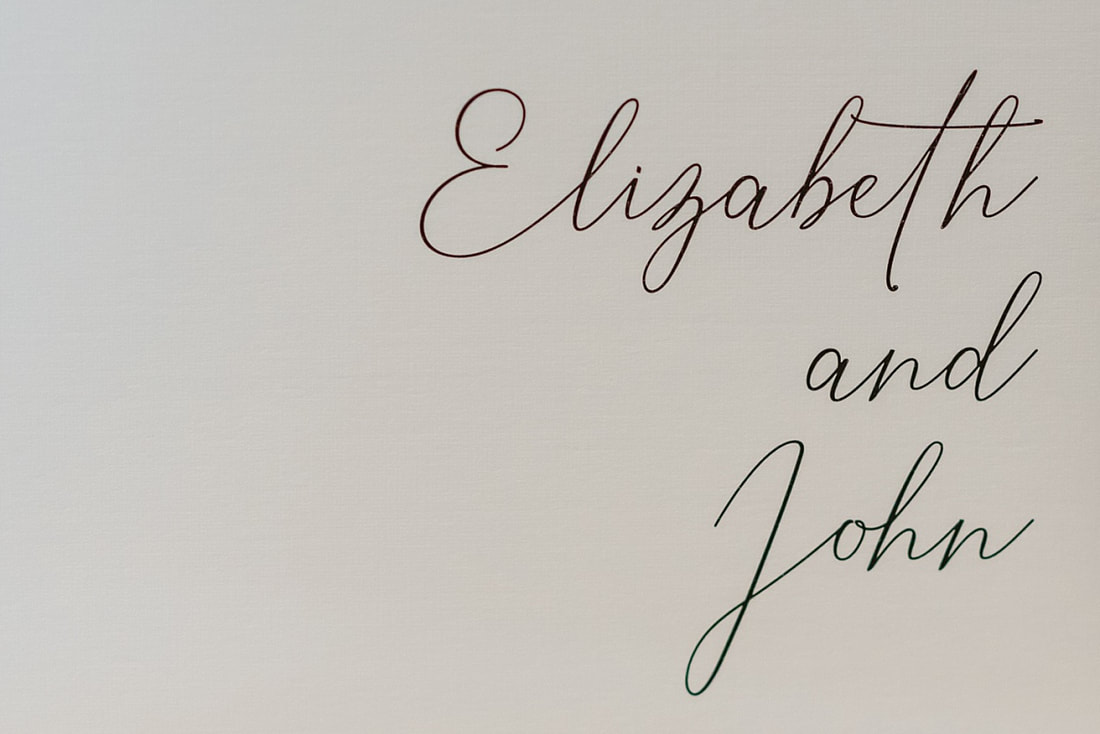 Elizabeth
and
John